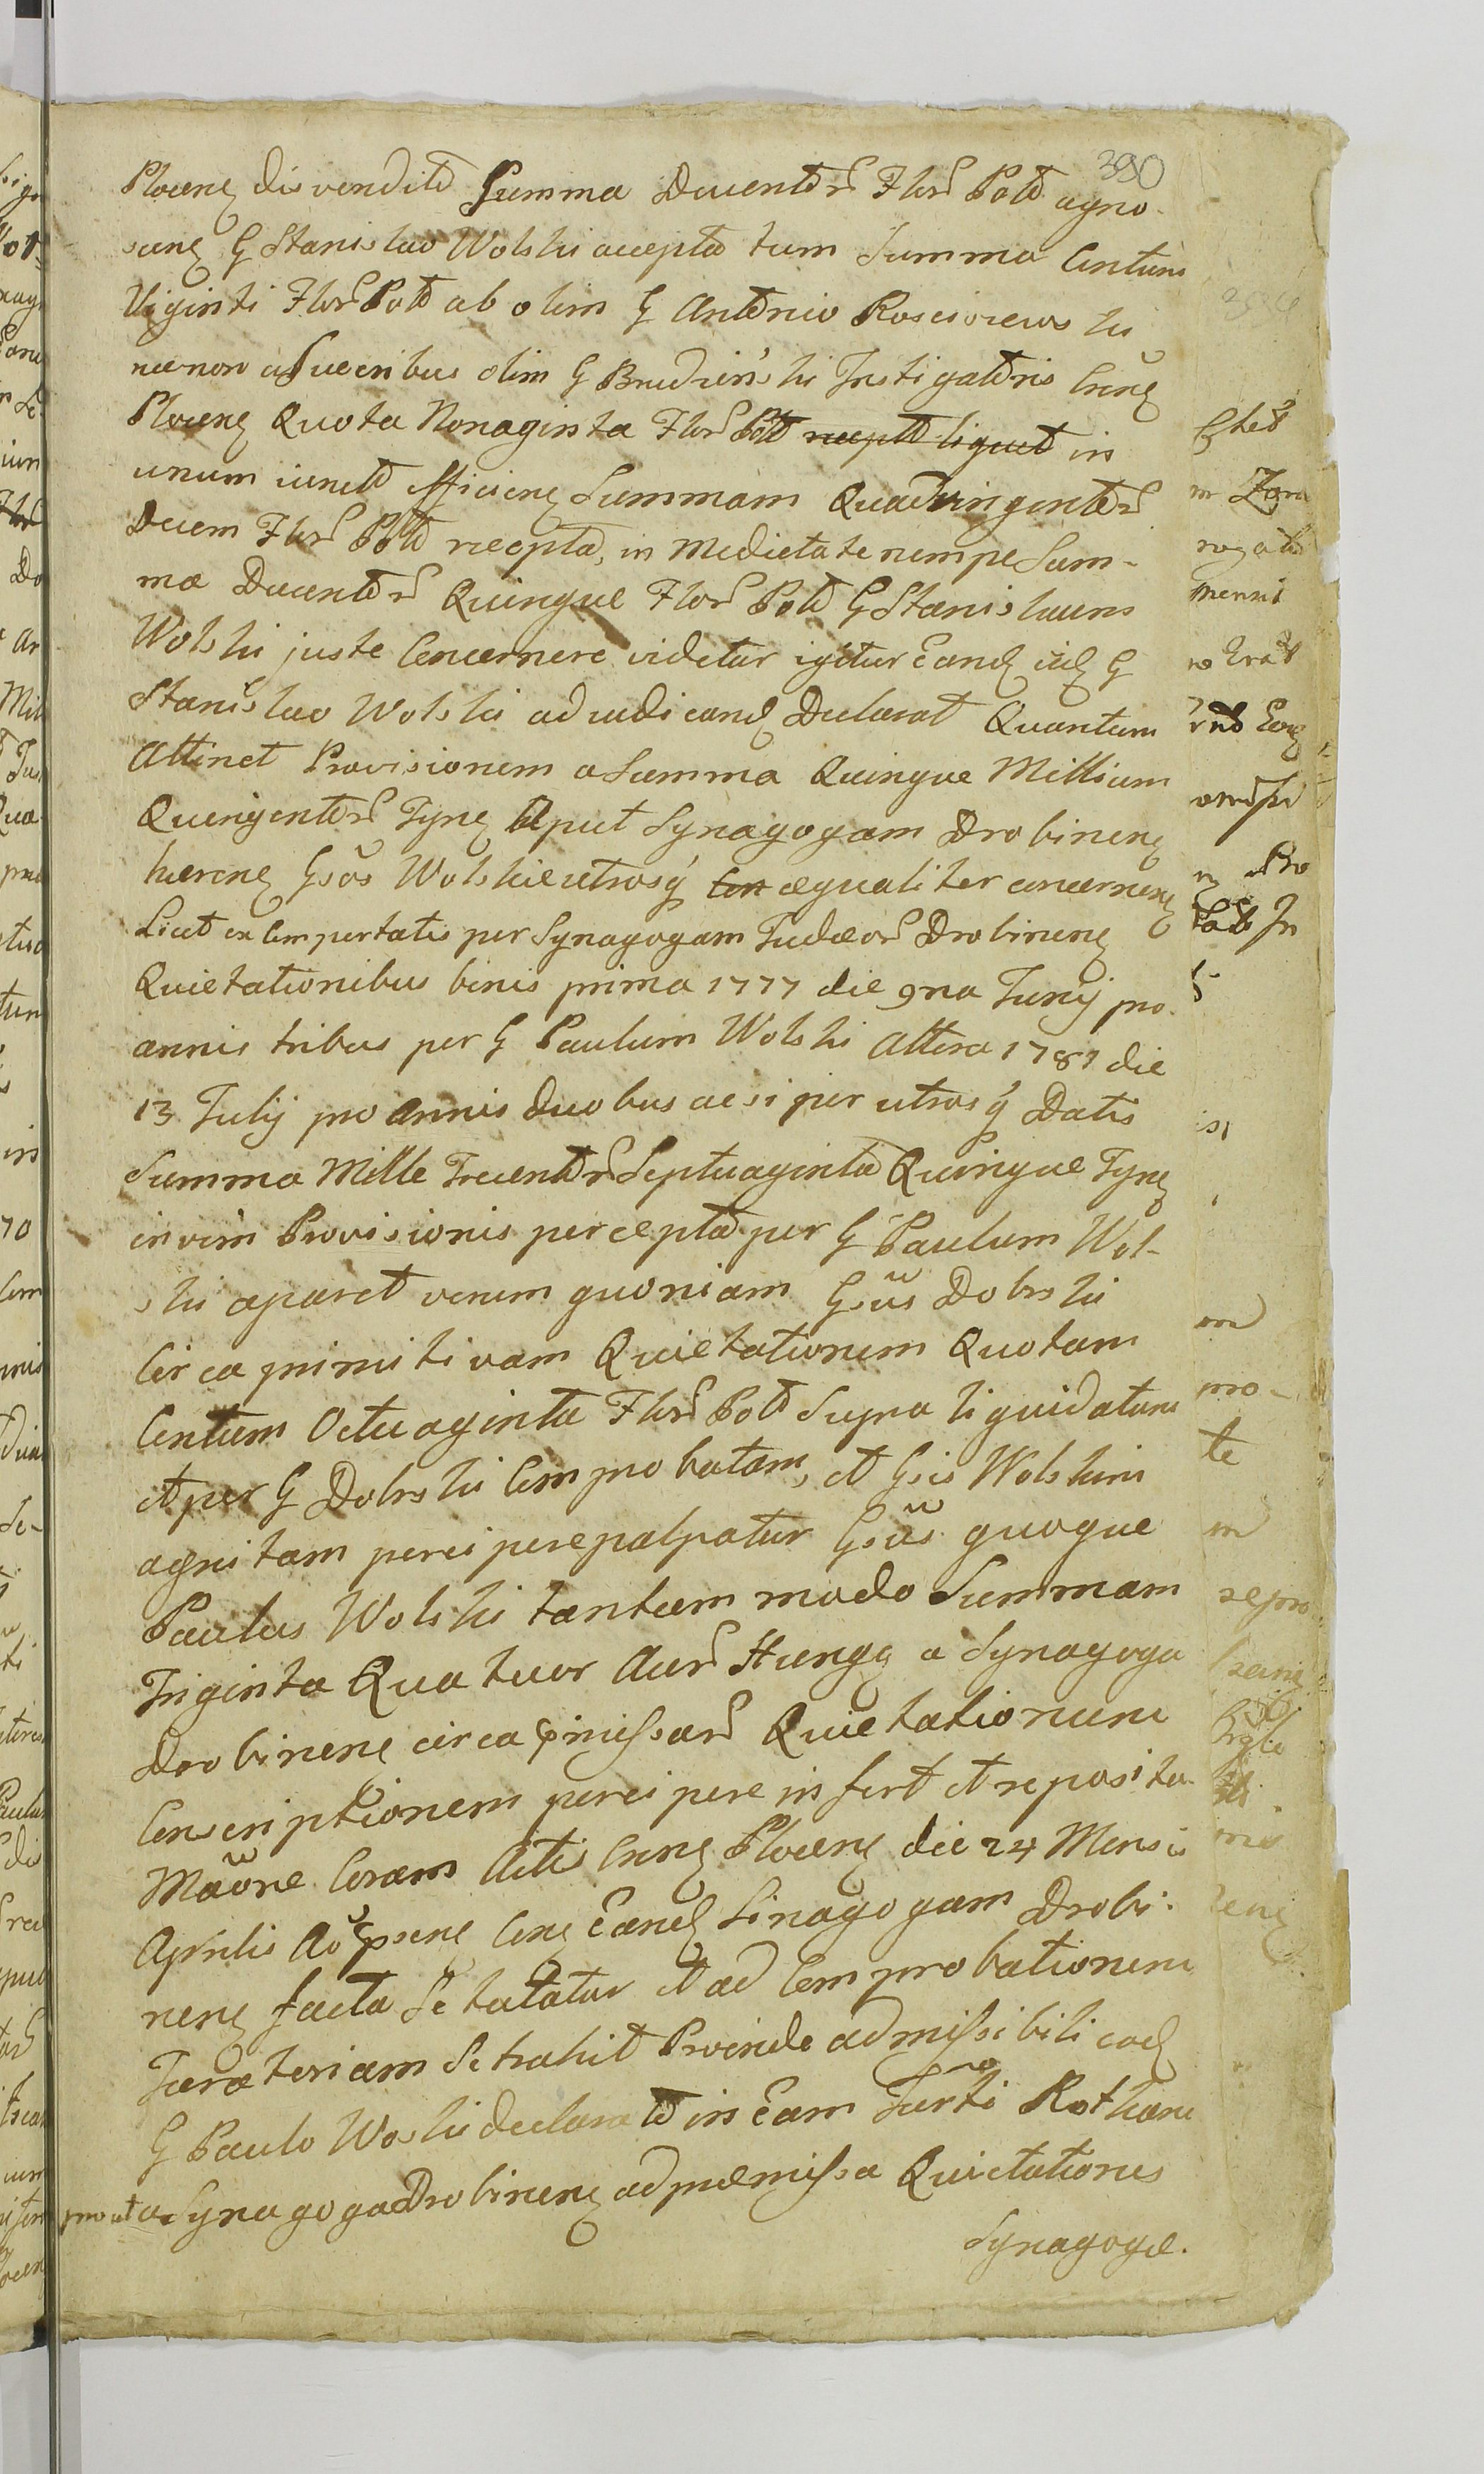 390
Plocen disvendito Summa Ducentor Flor Pol agno-
scen G Stanislao Wolski accepta tum Summa Centum
Viginti Flor Pol ab olim G Antonio Rosciszewski
necnon a Sucribus olim G Brudzinski Instigatoris Cren
Plocen Quota Nonaginta Flor Pol recepta liquet in
unum iuncta efficiens Summam Quadringentor
Decem Flor Pol recepta, in Medietate nempe Sum-
mæ Ducentor Quinque Flor Pol G Stanislaum
Wolski juste Concernere videtur igitur Eand iud G
Stanislao Wolski adiudicand Declarat Quantum
Attinet Provisionem a Summa Quinque Millium
Quingentor Tyn Aput Synagogam Drobinen
hæren Gsos Wolskie utrosq Con æqualiter concernen
Licet ex Comportatis per Synagogam Judæor Drobinen
Quietationibus binis prima 1777 die 9na Junij pro
annis tribus per G Paulum Wolski Altera 1781 die
13 Julij pro Annis duobus acsi per utrosq Datis
Summa Mille Trecentor Septuaginta Quinque Tyn
in vim Provisionis percepta per G Paulum Wol-
ski aparet verum quoniam Gsus Dobrski
Circa primitivam Quietationem Quotam
Centum Octuaginta Flor Pol Supra liquidatam
et per G Dobrski Comprobatam, et Gsis Wolskim
agnitam percipere palpatur Gsus quoque
Paulus Wolski tantum modo Summam
Triginta Quatuor Aur Hung a Synagoga
Drobinen circa præmissar Quietationum
Conscriptionem percipere infert et reposita
Maone Coram Actis Cren Plocen die 24 Mensis
Aprilis Ao præsen Cen Eand Sinagogam Drobi-
nen facta Se tutatur et ad Comprobationem
Juratoriam Se trahit Proinde admissibili eod
G Paulo Wolski declarato in Eam Jurti Rotham
prout a Synagoga Drobinen ad præmissa Quietationes
Synagogæ.